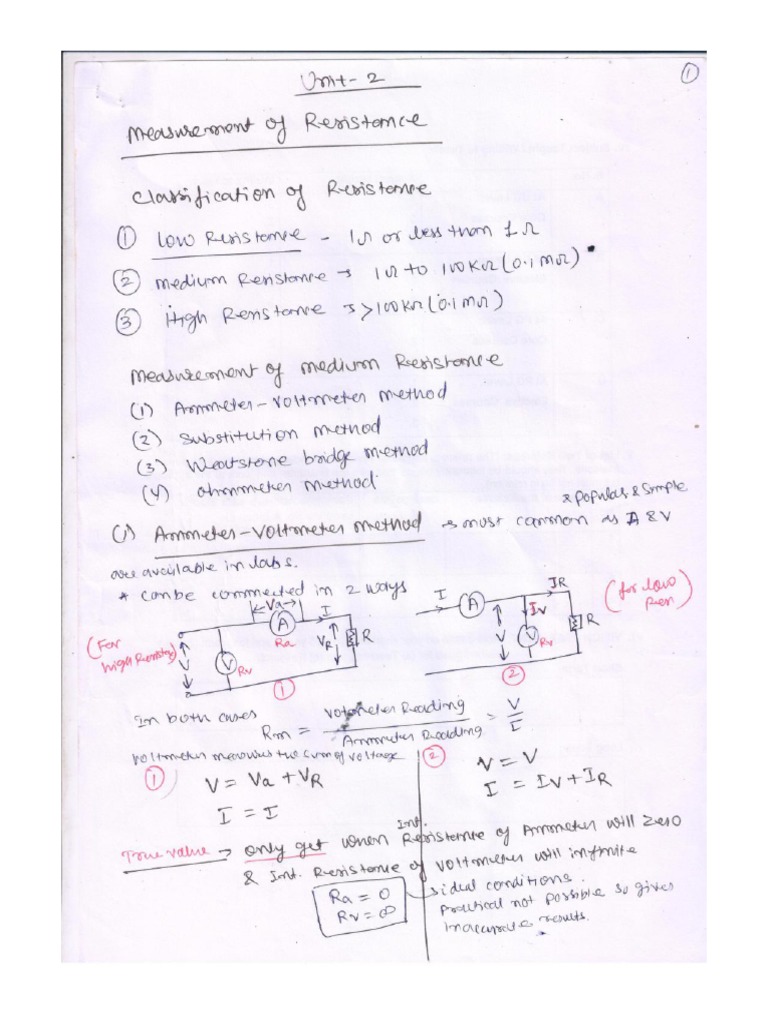 Unit-2
①
Measurement of Resistance
Classification of Resistance
① Low Resistance - 1Ω or less than 1Ω
② Medium Resistance → 1Ω to 100KΩ (0.1MΩ)
③ High Resistance → >100KΩ (0.1MΩ)
Measurement of medium Resistance
(1) Ammeter-Voltmeter method
(2) Substitution method
(3) Wheatstone bridge method
(4) ohmmeter method
* Popular & Simple
(1) Ammeter-Voltmeter method → most common as A & V
are available in labs.
* can be connected in 2 ways
(For high Resistance)
V
V
Rv
Va
A
Ra
I
VR
R
①
I
A
IR
V
IV
V
Rv
R
②
(for low Res)
In both cases
Rm = Voltmeter Reading / Ammeter Reading = V/I
Voltmeter measures the sum of voltage
① V = Va + VR
I = I
② V = V
I = IV + IR
True value → only get when Int. Resistance of Ammeter will Zero
& Int. Resistance of Voltmeter will infinite
Ra = 0
Rv = ∞
ideal conditions.
Practical not possible so gives
inaccurate results.